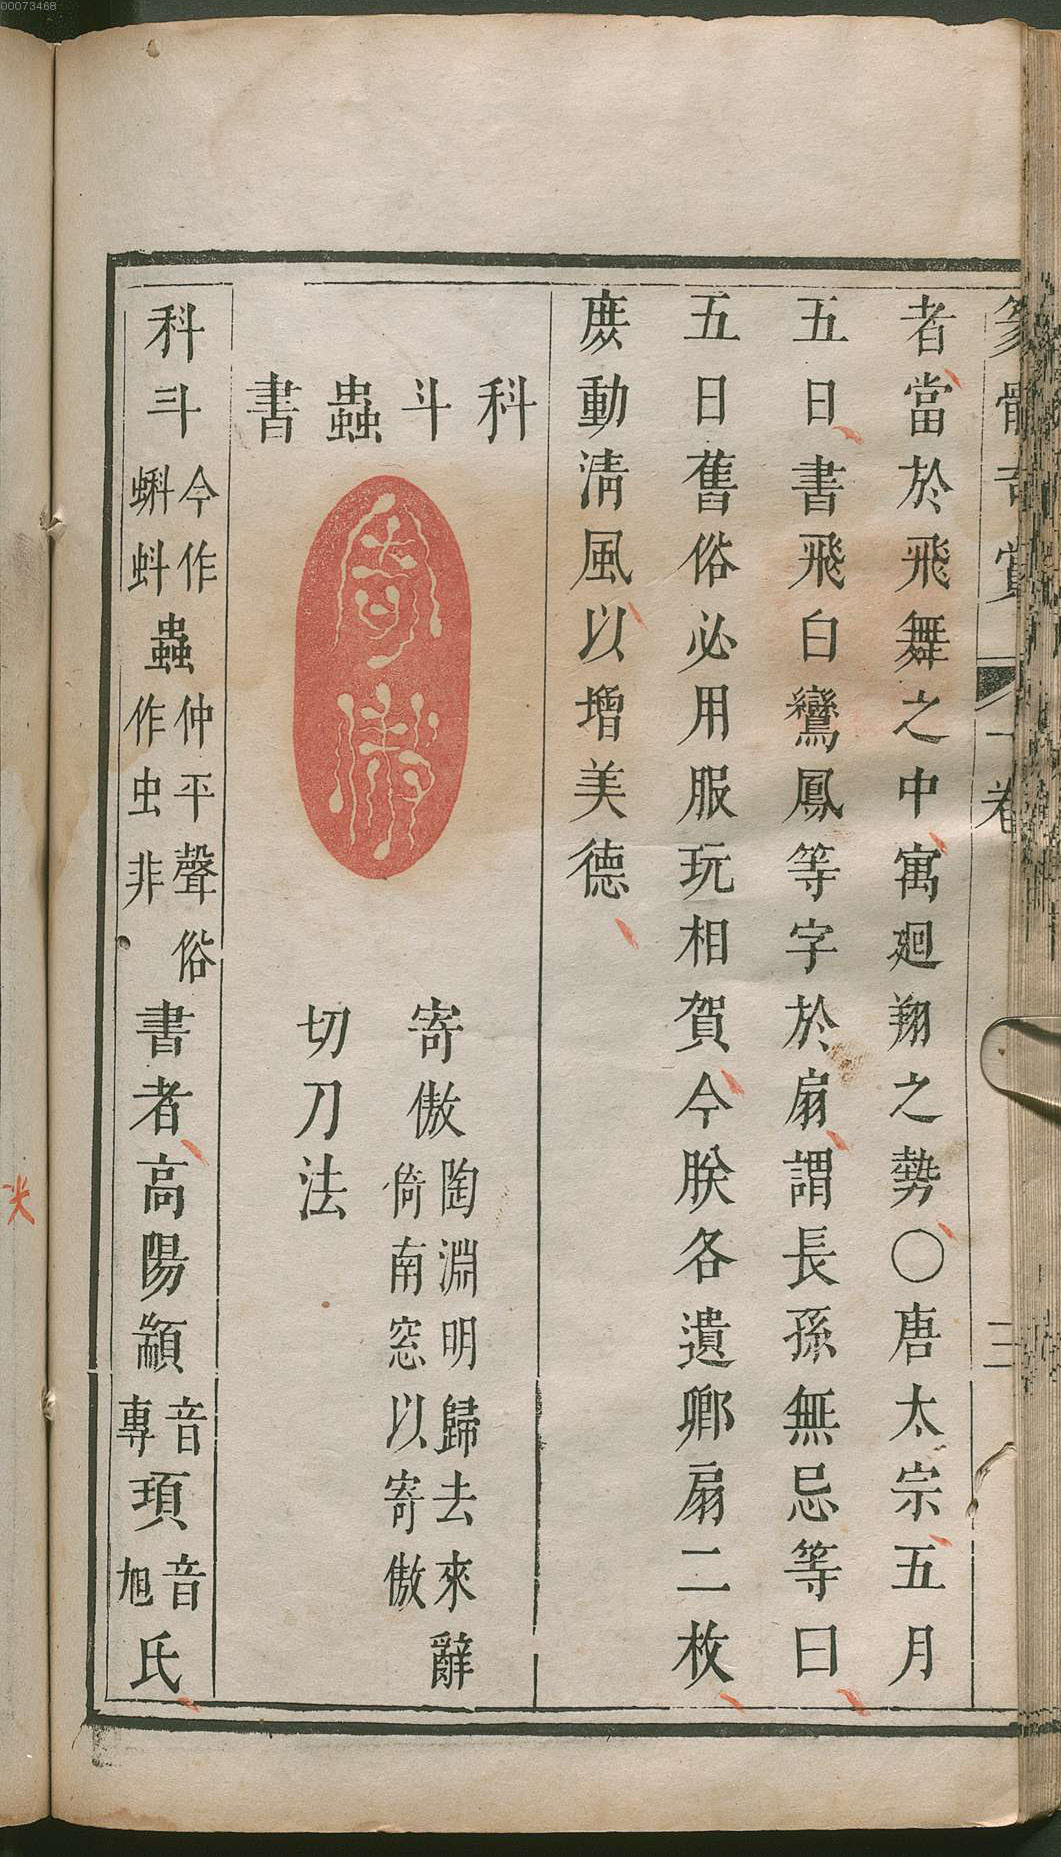 00073468
者當於飛舞之中寓廻翔之勢○唐太宗五月
五日書飛白鸞鳳等字於扇謂長孫無忌等曰
五日舊俗必用服玩相賀今朕各遺卿扇二枚
庶動淸風以增美德
科斗蟲書
寄傲
陶淵明歸去來辭
倚南窓以寄傲
切刀法
科斗今作蝌蚪蟲仲平聲俗作虫非書者高陽顓音專頊音旭氏